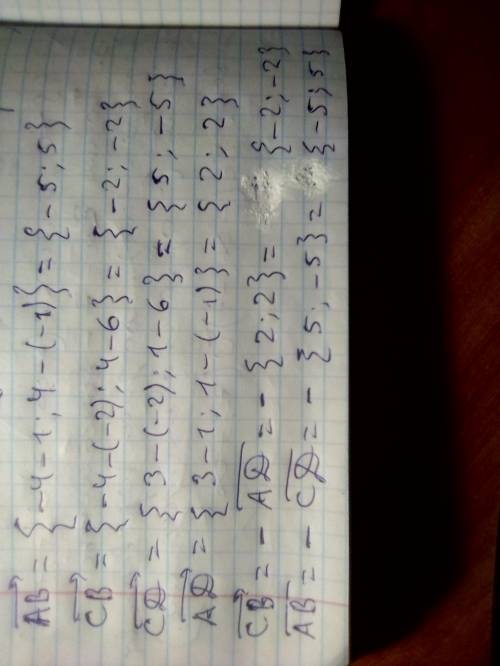 AB = {-4-1; 4-(-1)} = {-5; 5}
CB = {-4-(-2); 4-6} = {-2; -2}
CD = {3-(-2); 1-6} = {5; -5}
AD = {3-1; 1-(-1)} = {2; 2}
CB = - AD = - {2; 2} = {-2; -2}
AB = - CD = - {5; -5} = {-5; 5}